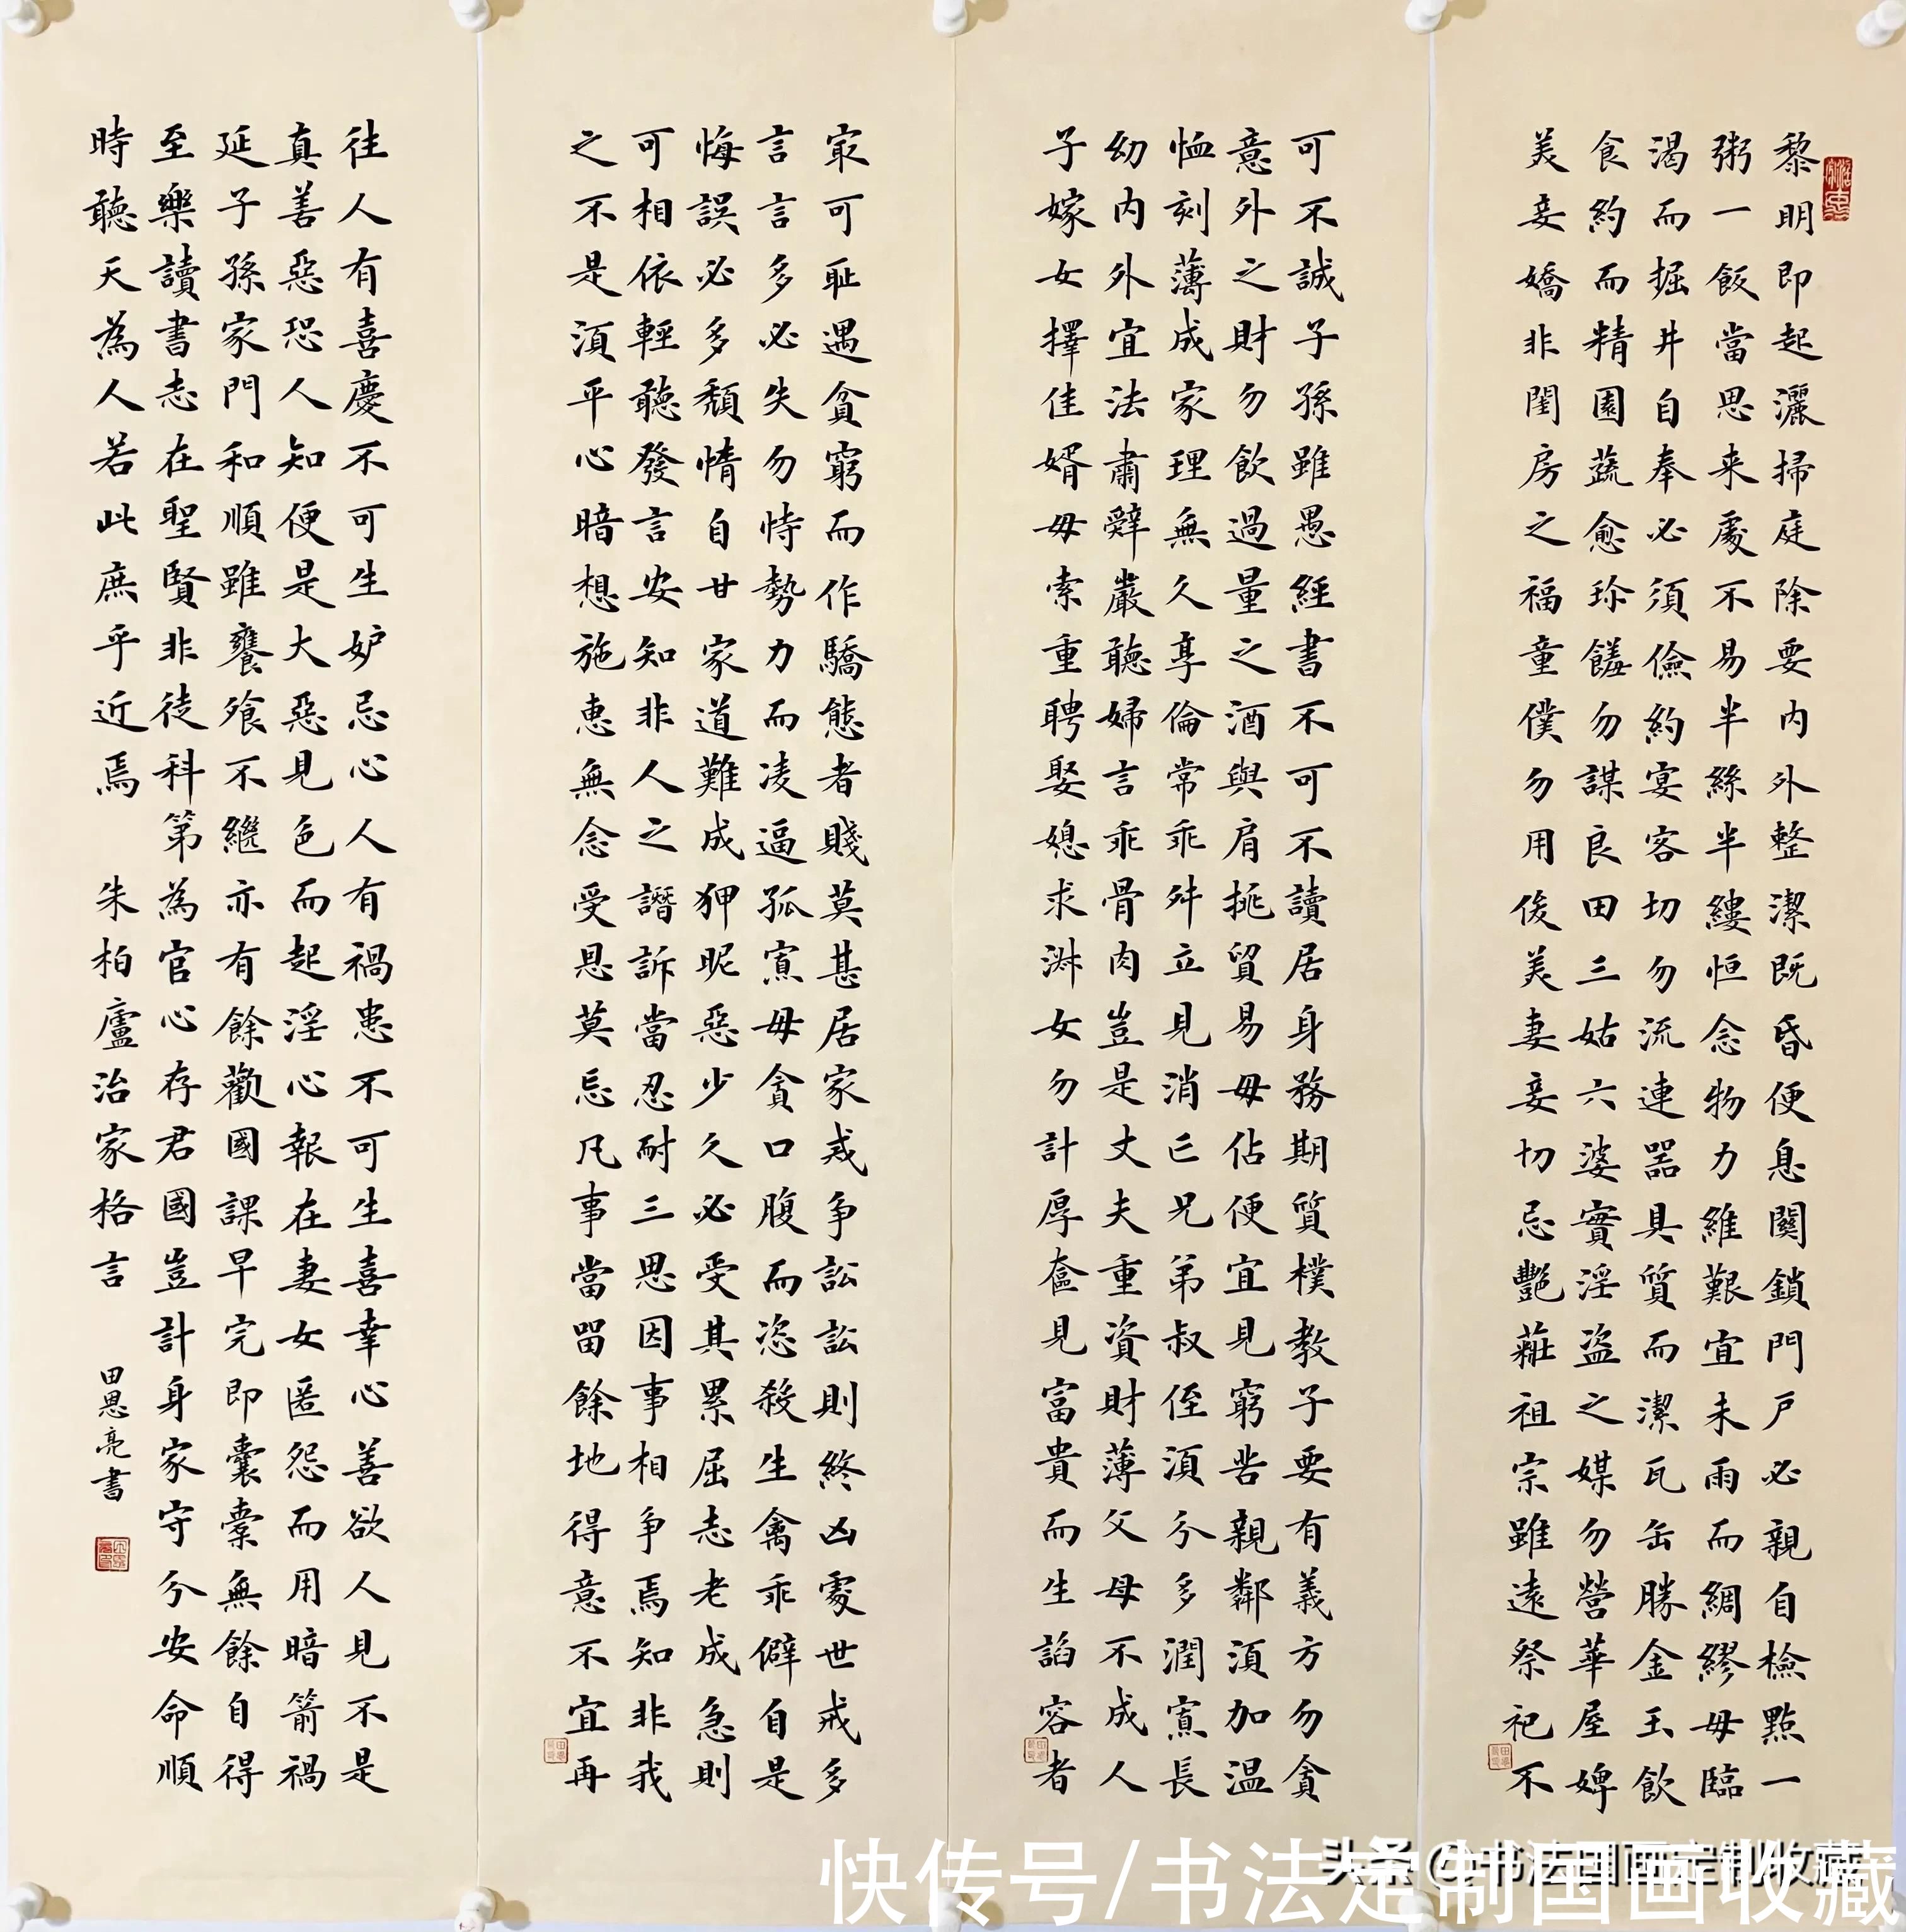 黎明即起灑掃庭除要内外整潔既昏便息關鎖門户必親自檢點一
粥一飯當思来處不易半絲半縷恒念物力維艱宜未雨而綢繆毋臨
渴而掘井自奉必須儉約宴客切勿流連器具質而潔瓦缶勝金玉飲
食約而精園蔬愈珍饈勿謀良田三姑六婆實淫盗之媒勿營華屋婢
美妾嬌非閨房之福童僕勿用俊美妻妾切忌艷糚祖宗雖遠祭祀不
可不誠子孫雖愚經書不可不讀居身務期質樸教子要有義方勿貪
意外之財勿飲過量之酒與肩挑貿易毋佔便宜見窮苦親鄰須加温
恤刻薄成家理無久享倫常乖舛立見消亡兄弟叔侄須分多潤寡長
幼内外宜法肅辭嚴聽婦言乖骨肉豈是丈夫重資財薄父母不成人
子嫁女擇佳婿毋索重聘娶媳求淑女勿計厚奩見富貴而生諂容者
最可耻遇貧窮而作驕態者賤莫甚居家戒争訟訟則終凶處世戒多
言言多必失勿恃勢力而凌逼孤寡毋貪口腹而恣殺生禽乖僻自是
悔誤必多頽惰自甘家道難成狎昵惡少久必受其累屈志老成急則
可相依輕聽發言安知非人之譖訴當忍耐三思因事相争焉知非我
之不是須平心暗想施惠無念受恩莫忘凡事當留餘地得意不宜再
往人有喜慶不可生妒忌心人有禍患不可生喜幸心善欲人見不是
真善惡恐人知便是大惡見色而起淫心報在妻女匿怨而用暗箭禍
延子孫家門和順雖饔飧不繼亦有餘歡國課早完即囊橐無餘自得
至樂讀書志在聖賢非徒科第為官心存君國豈計身家守分安命順
時聽天為人若此庶乎近焉 朱柏廬治家格言 田恩亮書
头条@书法国画定制收藏
快传号/书法定制国画收藏